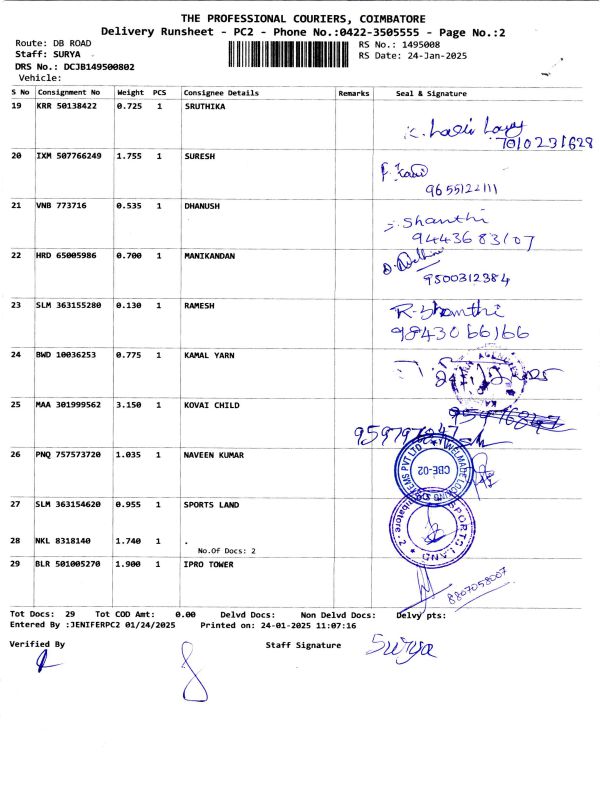 THE PROFESSIONAL COURIERS, COIMBATORE
Delivery Runsheet - PC2 - Phone No.:0422-3505555 - Page No.:2
Route: DB ROAD
Staff: SURYA
DRS No.: DCJB149500802
Vehicle:
RS No.: 1495008
RS Date: 24-Jan-2025
S No Consignment No Weight PCS Consignee Details Remarks Seal & Signature
19 KRR 50138422 0.725 1 SRUTHIKA
7010231628
20 IXM 507766249 1.755 1 SURESH
9655122111
21 VNB 773716 0.535 1 DHANUSH
S. Shanthi
9443683107
22 HRD 65005986 0.700 1 MANIKANDAN
9500312384
23 SLM 363155280 0.130 1 RAMESH
R. Shanthi
9843066166
24 BWD 10036253 0.775 1 KAMAL YARN
25 MAA 301999562 3.150 1 KOVAI CHILD
26 PNQ 757573720 1.035 1 NAVEEN KUMAR
CBE-02
27 SLM 363154620 0.955 1 SPORTS LAND
SPORTS LAND
28 NKL 8318140 1.740 1 .
No.Of Docs: 2
29 BLR 501005270 1.900 1 IPRO TOWER
8807058007
Tot Docs: 29 Tot COD Amt: 0.00 Delvd Docs: Non Delvd Docs: Delvy pts:
Entered By :JENIFERPC2 01/24/2025 Printed on: 24-01-2025 11:07:16
Verified By Staff Signature Surya